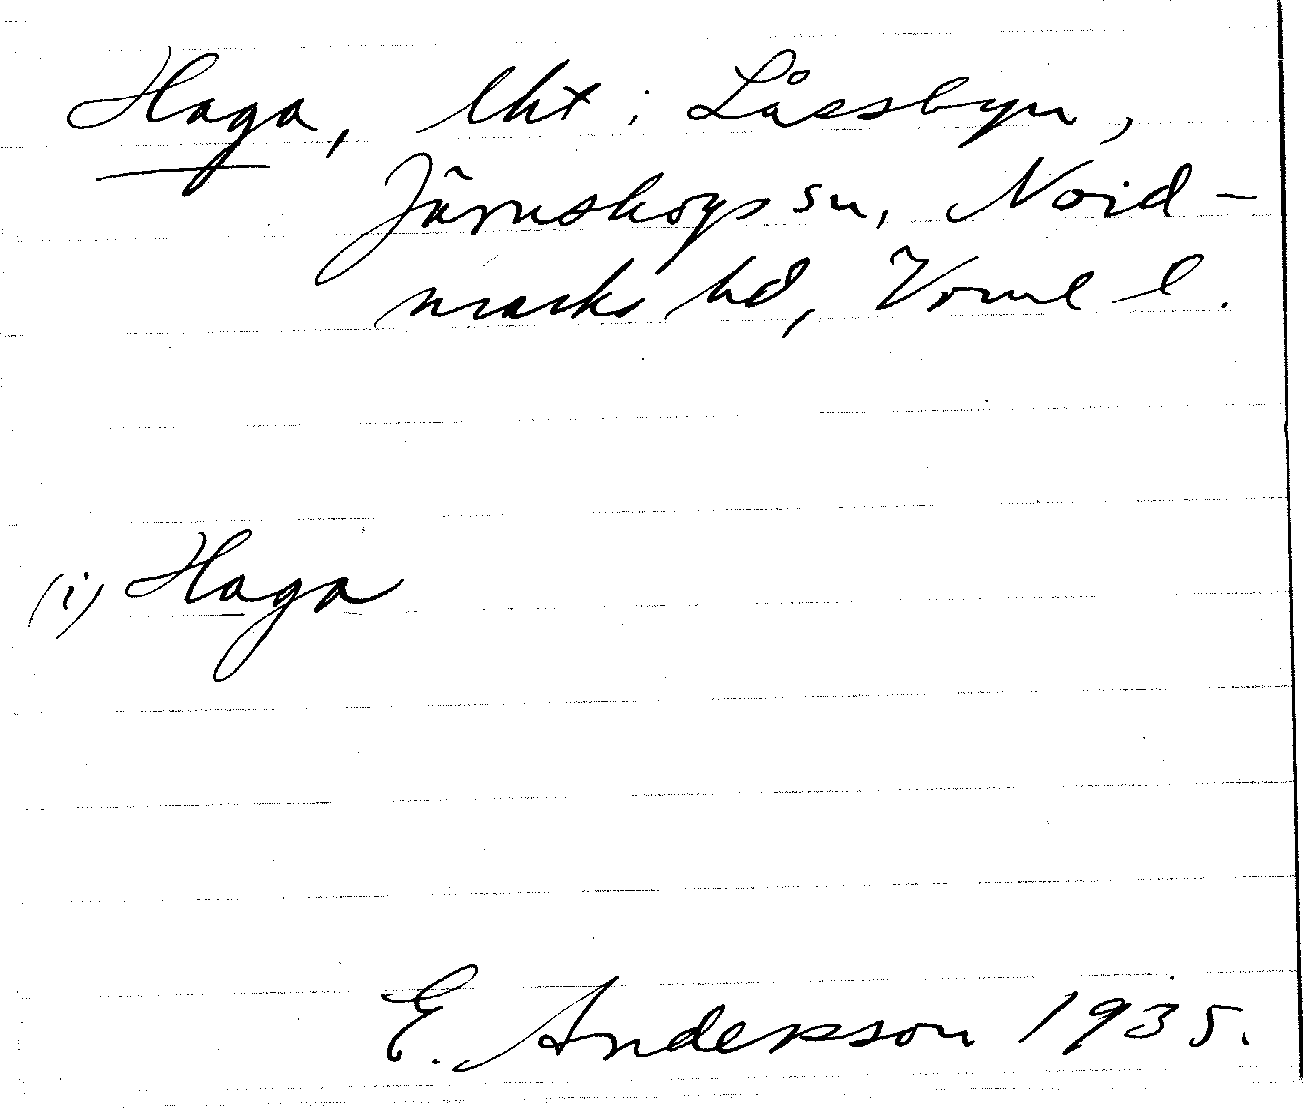 Haga, lht i Låssbyn,
Järnskogs sn, Nord-
marks hd, Verml l.
(i) Haga
E. Andersson 1935.